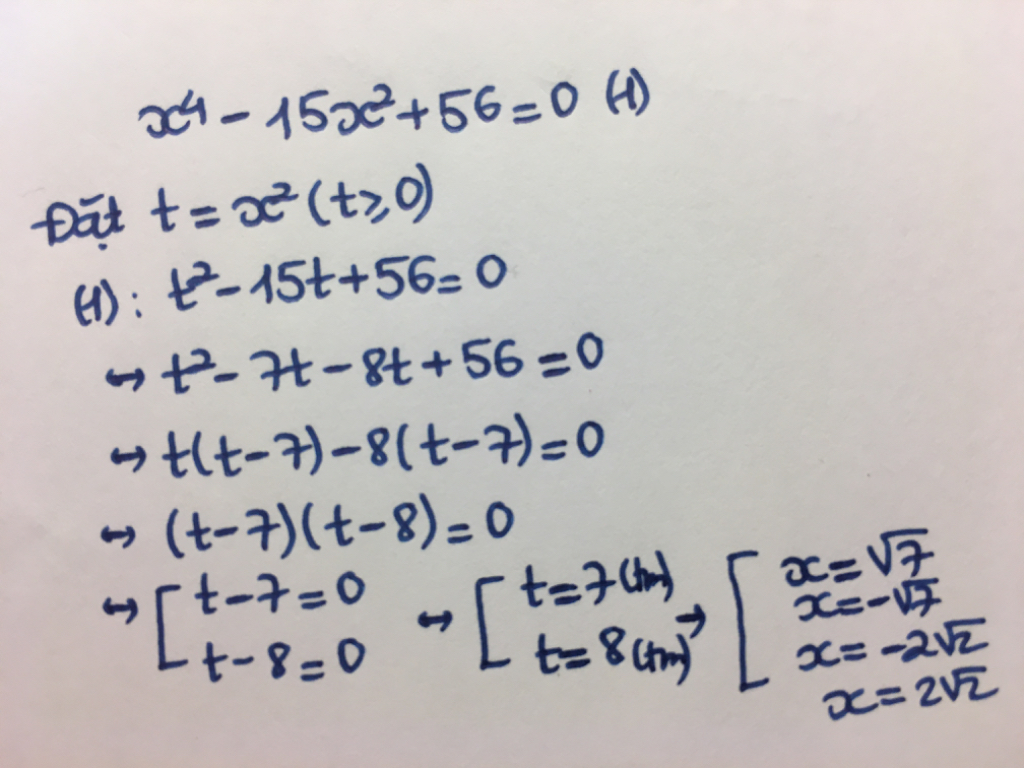 x⁴ - 15x² + 56 = 0 (1)
Đặt t = x² (t ≥ 0)
(1): t² - 15t + 56 = 0
↔ t² - 7t - 8t + 56 = 0
↔ t(t - 7) - 8(t - 7) = 0
↔ (t - 7)(t - 8) = 0
↔ [ t - 7 = 0
t - 8 = 0
↔ [ t = 7 (tm)
t = 8 (tm)
→ [ x = √7
x = -√7
x = -2√2
x = 2√2